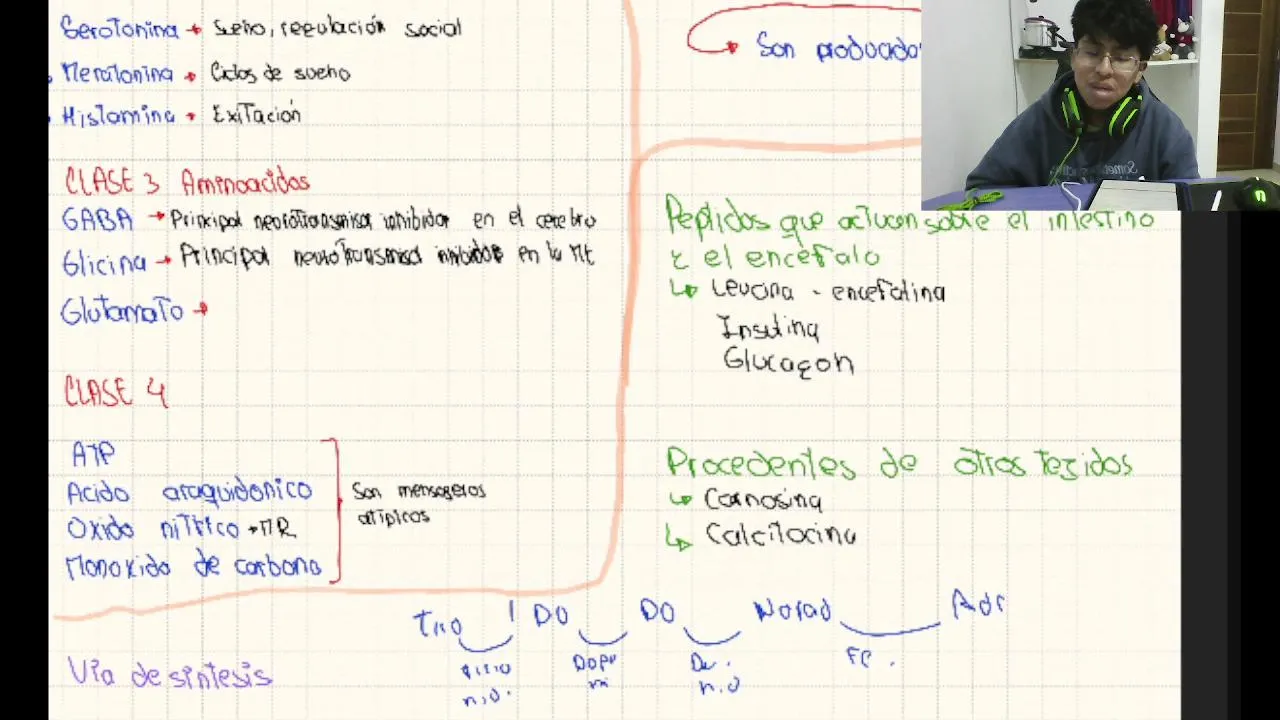 Serotonina → Sueño, regulación social
Meratonina → Ciclos de sueño
Histamina → Exitación
Son producidos
CLASE 3 Aminoacidos
GABA → Principal neurotransmisor inhibidor en el cerebro
Glicina → Principal neurotransmisor inhibidor en la ME
Glutamato →
CLASE 4
ATP
Acido araquidonico
Oxido nitrico → MR
Monoxido de carbono
Son mensageros
atipicos
Peptidos que actuan sobre el intestino
y el encefalo
↳ Leucina - encefalina
Insulina
Glucagon
Procedentes de otros tegidos
↳ Carnosina
↳ Calcitocina
DO DO Norad Adr
Via de sintesis